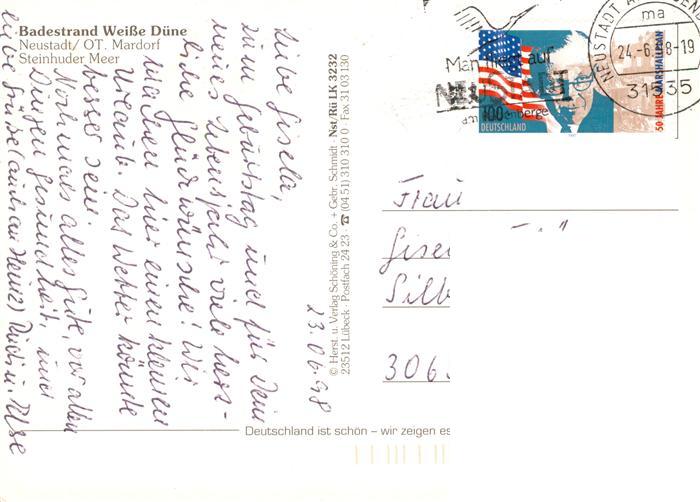 Badestrand Weiße Düne
Neustadt/ OT. Mardorf
Steinhuder Meer
23.06.98
Liebe Gisela,
zum Geburtstag und für Dein
neues Lebensjahr viele herz-
liche Glückwünsche! Wir
machen hier einen kleinen
Urlaub. Das Wetter könnte
besser sein.
Nochmals alles Gute, vor allen
Dingen Gesundheit, und
liebe Grüße (auch an Heinz) Dieter u. Ilse
© Herst. u. Verlag Schöning & Co. + Gebr. Schmidt · Nst/Rü LK 3232
23512 Lübeck · Postfach 24 23 · ☎ (04 51) 310 310 0 · Fax 31 03 130
Deutschland ist schön – wir zeigen es
ma
24.-6. 98-19
31535
Man auf
NEUSTADT
am
100
DEUTSCHLAND
50 JAHRE MARSHALLPLAN
Frau
Gisel
Silb
306